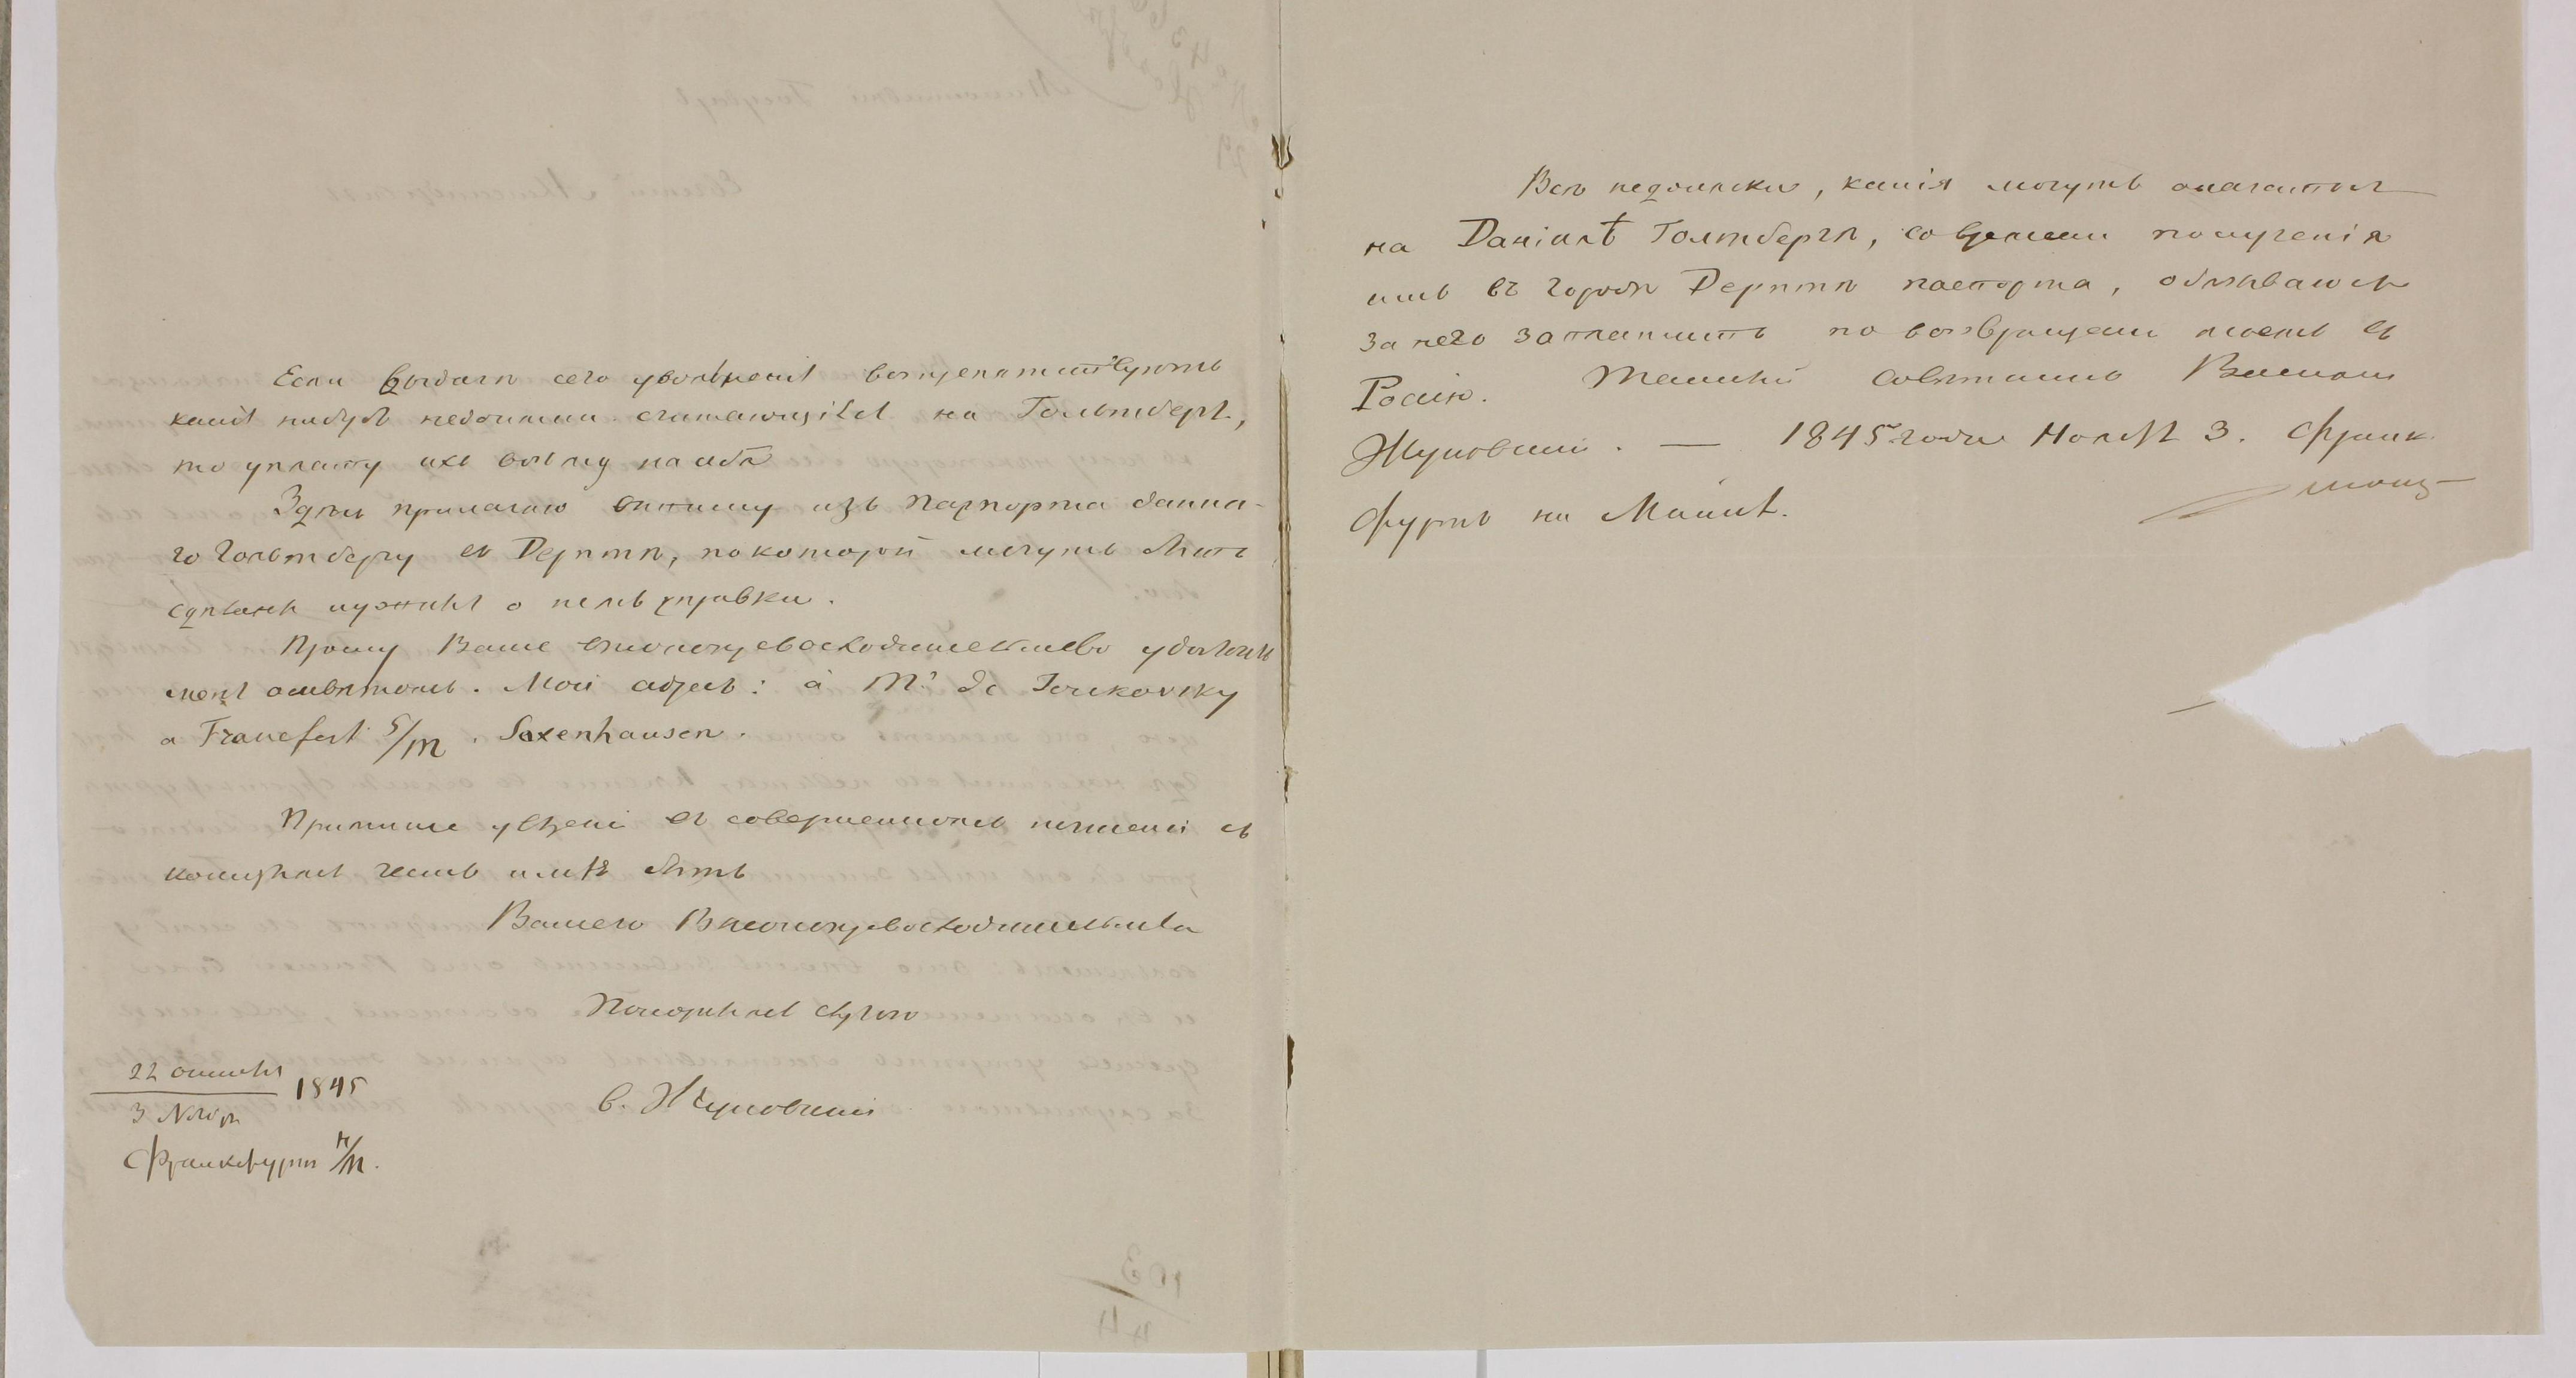 Если выдачѣ сего увольненія воспрепятствуютъ
какія нибудь недоимки считающіяся на Гольтберг,
то уплату ихъ возьму на себя
Здѣсь прилагаю выписку изъ пасспорта данна-
го Гольтбергу въ Дерптѣ, по которой могутъ быть
сдѣланы нужныя о немъ справки.
Прошу Ваше Высокопревосходительство удостоить
меня отвѣтомъ. Мой адресъ: à Mr de Joukovsky
a Francfort s/m. Saxenhausen.
Примите увѣреніе въ совершенномъ почтеніи съ
которымъ честь имѣю быть
Вашего Высокопревосходительства
Покорнымъ слугою
22 октября
3 Ноябр 1845
Франкфуртъ н/М.
В. Жуковскій
Всѣ недоимки, какія могутъ оказаться
на Даніилѣ Голтбергѣ, со времени полученія
имъ въ городѣ Дерптѣ паспорта, обязываюсь
за него заплатить по возвращеніи моемъ въ
Росію. Тайный совѣтникъ Василій
Жуковскій. — 1845 года Нояб 3. Франк
фуртъ на Майнѣ.